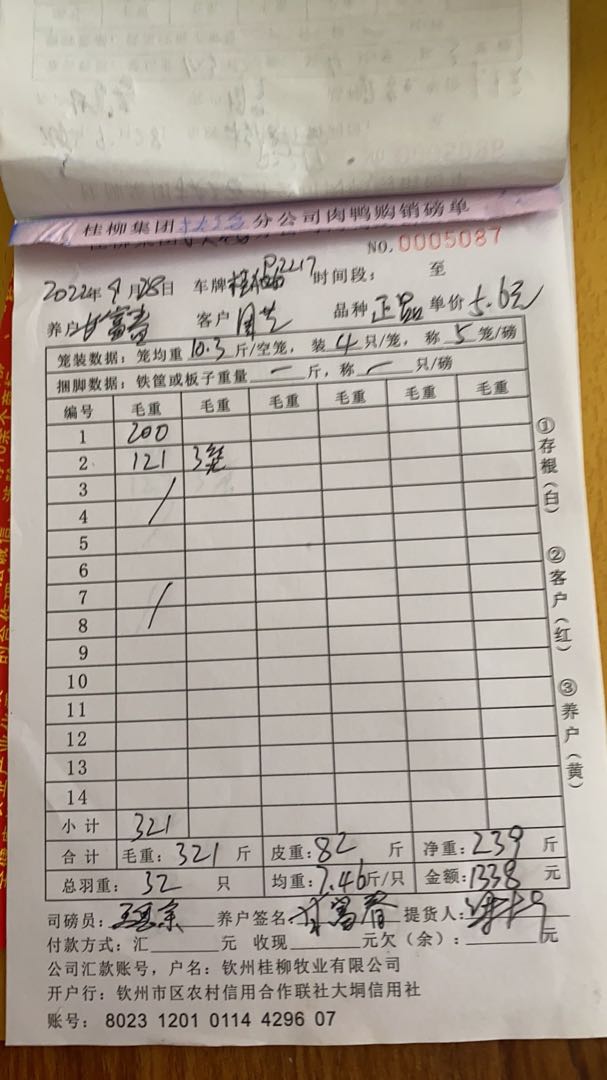 桂柳集团大口分公司肉鸭购销磅单
NO.0005087
2022年9月28日 车牌桂 P2217 时间段: 至
养户甘富春 客户周芝 品种正品 单价5.6元
笼装数据：笼均重10.3斤/空笼，装4只/笼，称5笼/磅
捆脚数据：铁筐或板子重量—斤，称—只/磅
编号 毛重 毛重 毛重 毛重 毛重 毛重
1 200
2 121 3笼
3
4
5
6
7
8
9
10
11
12
13
14
小计 321
合计 毛重:321斤 皮重:82斤 净重:239斤
总羽重: 32 只 均重:7.46斤/只 金额:1338元
司磅员: 养户签名: 甘富春 提货人:
付款方式：汇 元 收现 元欠（余）： 元
公司汇款账号，户名：钦州桂柳牧业有限公司
开户行：钦州市区农村信用合作联社大垌信用社
账号： 8023 1201 0114 4296 07
①存根(白)
②客户(红)
③养户(黄)